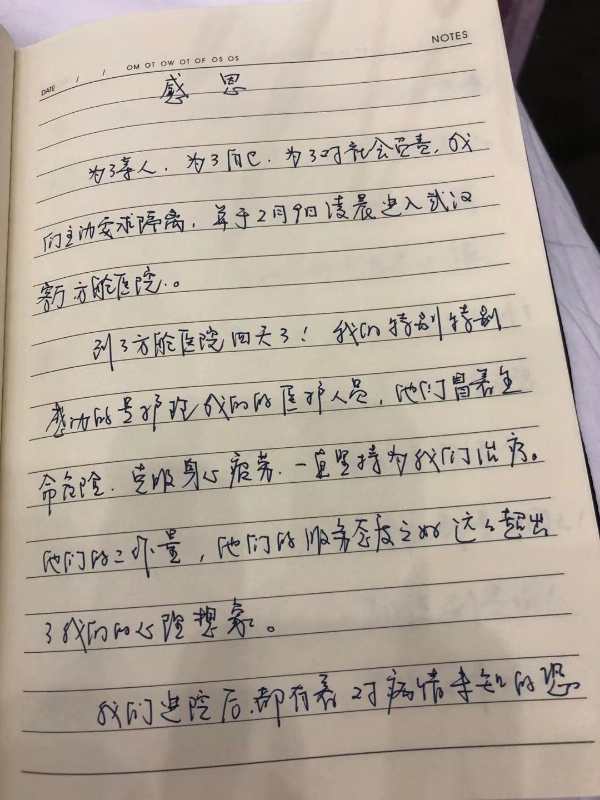 NOTES
DATE / / OM OT OW OT OF OS OS
感 恩
为了亲人，为了自己，为了对社会负责，我
们主动要求隔离，并于2月9日凌晨进入武汉
客厅方舱医院。
到了方舱医院四天了！我们特别特别
感动的是护理我们的医护人员，他们冒着生
命危险，克服身心疲劳，一直坚持为我们治疗。
他们的工作量，他们的服务态度之好远远超出
了我们的心理想象。
我们进院后，都有着对病情未知的恐